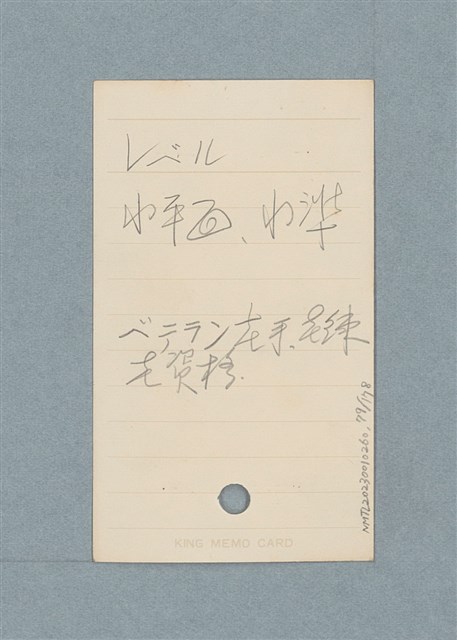 レベル
水平面、水準
ベテラン老手、老練
老資格.
KING MEMO CARD
NMTL20230010260, 79/178